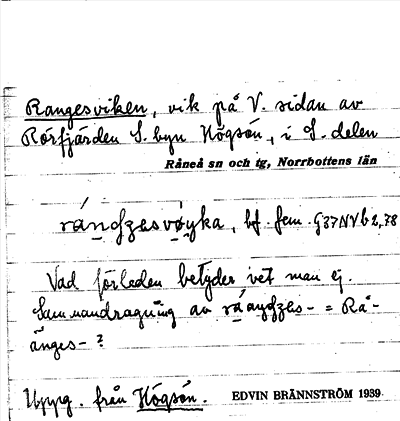 Rangesviken, vik på V. sidan av
Rörfjärden S. byn Högsön, i S. delen
Råneå sn och tg, Norrbottens län
rángzesvøyka, bf. fem. G37NVb2,78
Vad förleden betyder vet man ej.
Sammandragning av ráangzes- = Rå-
änges- ?
Uppg. från Högsön. EDVIN BRÄNNSTRÖM 1939